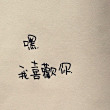 嘿
我喜歡你